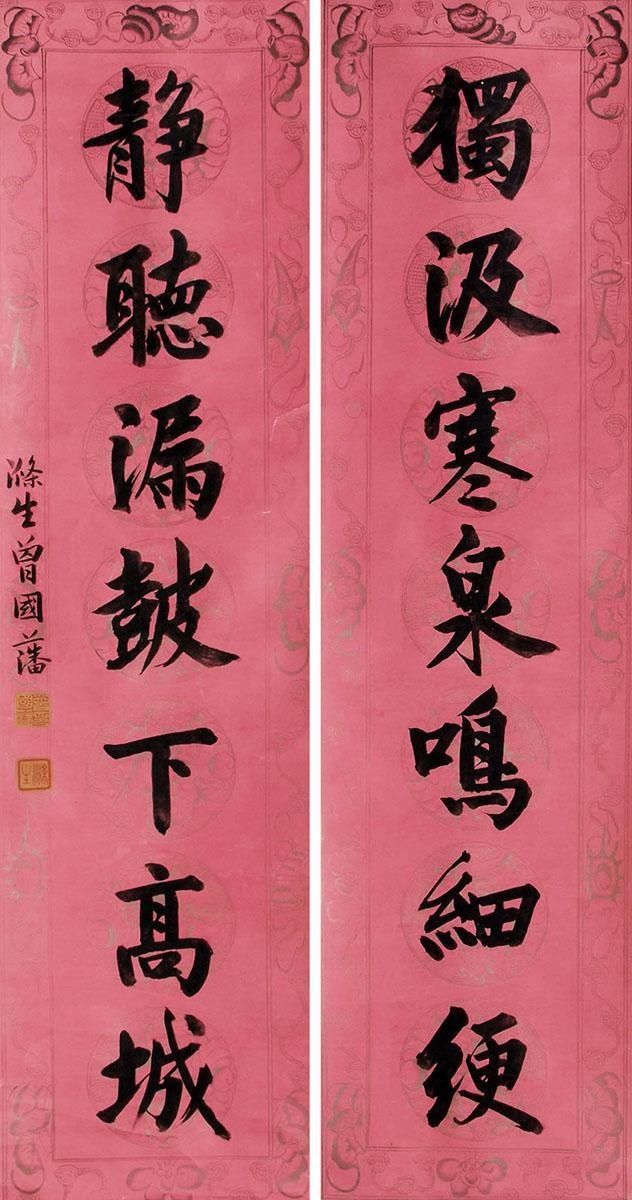 獨汲寒泉鳴細綆
静聽漏鼓下高城
滌生曾國藩